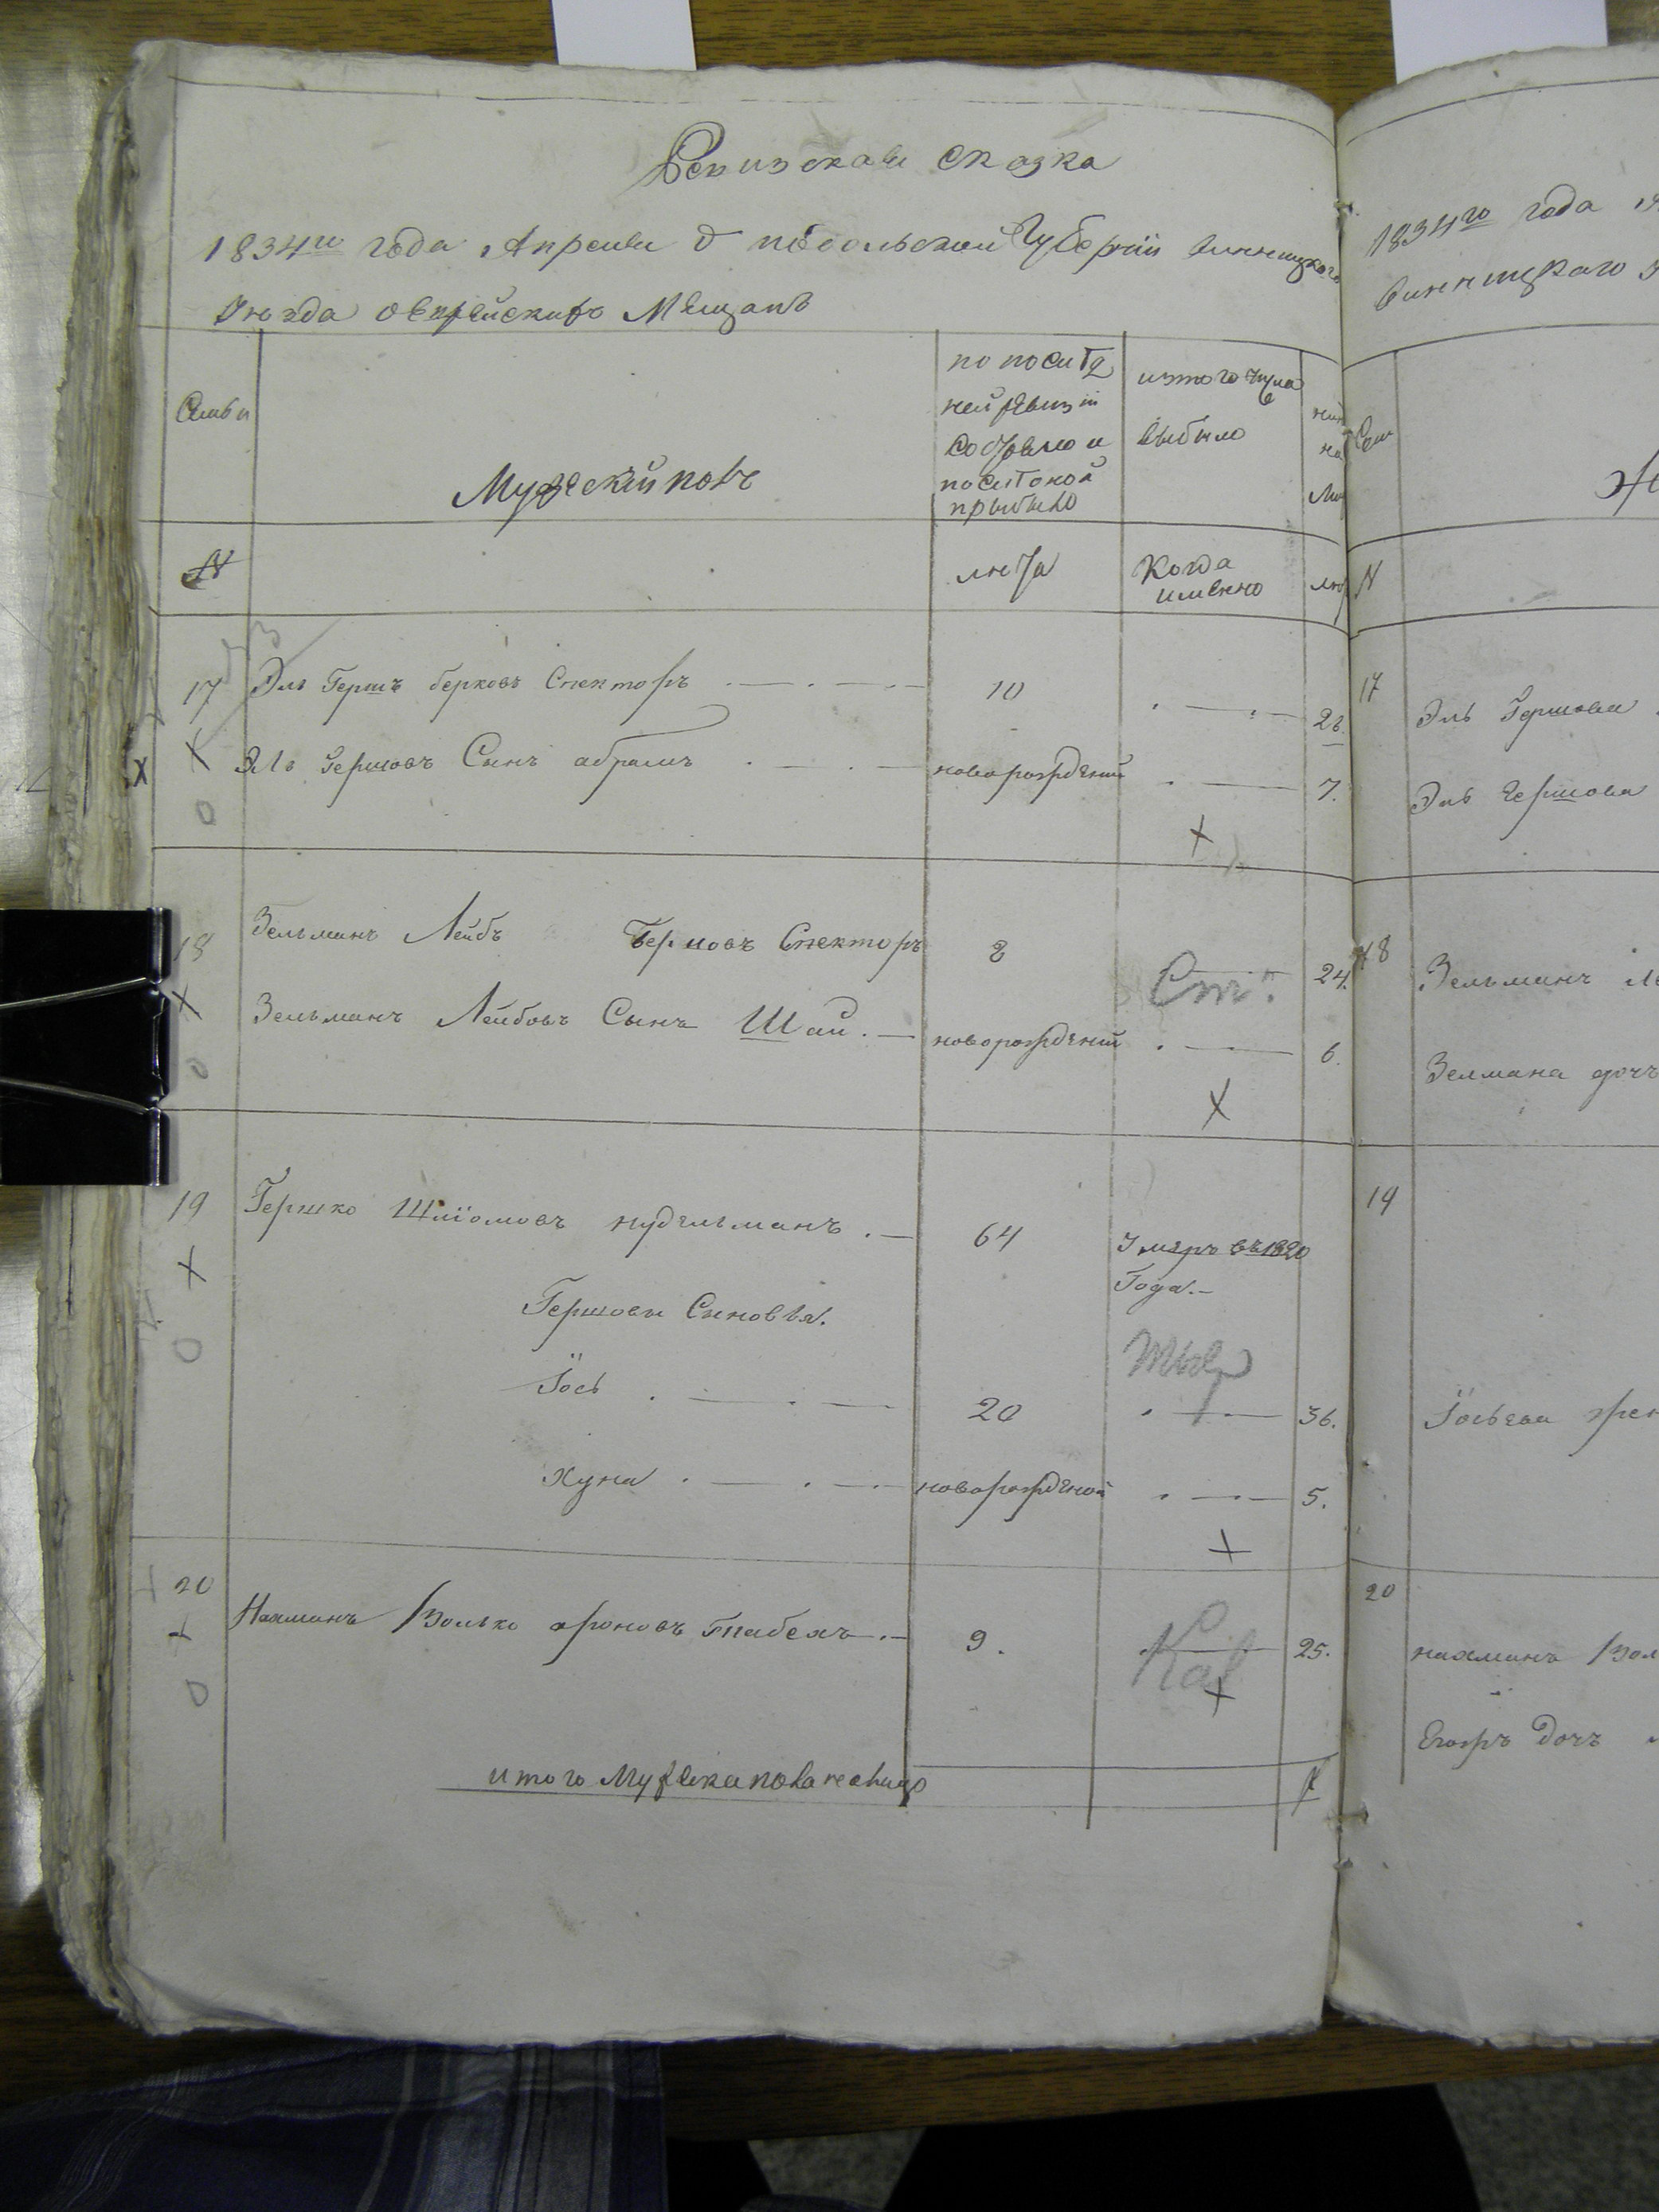 Ревизская сказка
1834го года Апреля д подольской Губернии винницкого
Уезда о еврейскихъ Мещанъ
Семьи
Мужеский полъ
по послед
ней ревизіи
состояло и
послеToй
прыбыло
изтого числа
выбыло
N
лета
Когда
имянно
17
Эль Гершъ берковъ Спекторъ
10
26.
Эль Гершовъ Сынъ абрамъ
новорожденій
7.
18
Зельманъ Лейбъ Берковъ Спекторъ
8
24.
Зельманъ Лейбовъ Сынъ Шай
новорожденій
6.
19
Гершко Шліомовъ нудельманъ
64
Умэръ въ 1820
Года.
Гершовы Сыновья.
Іось
20
36.
Хуна
новорожденой
5.
20
Нахманъ Волько ароновъ
9.
25.
итого Мужеска пола налицо
1834го года
винницкаго
N
17
Эль Гершова
Эль Гершова
18
Зельманъ
Зелмана дочъ
19
Іосьева
20
нахманъ
Егожъ Дочъ